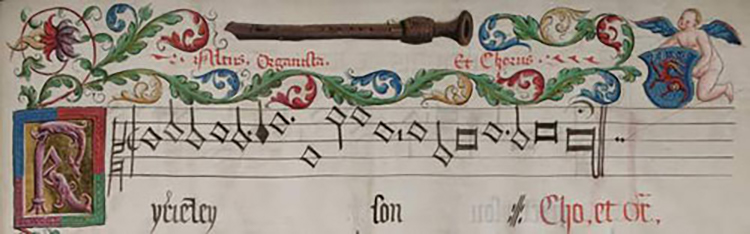 Altus. Organista. Et Chorus.
Kyrieley son Cho, et Or.,